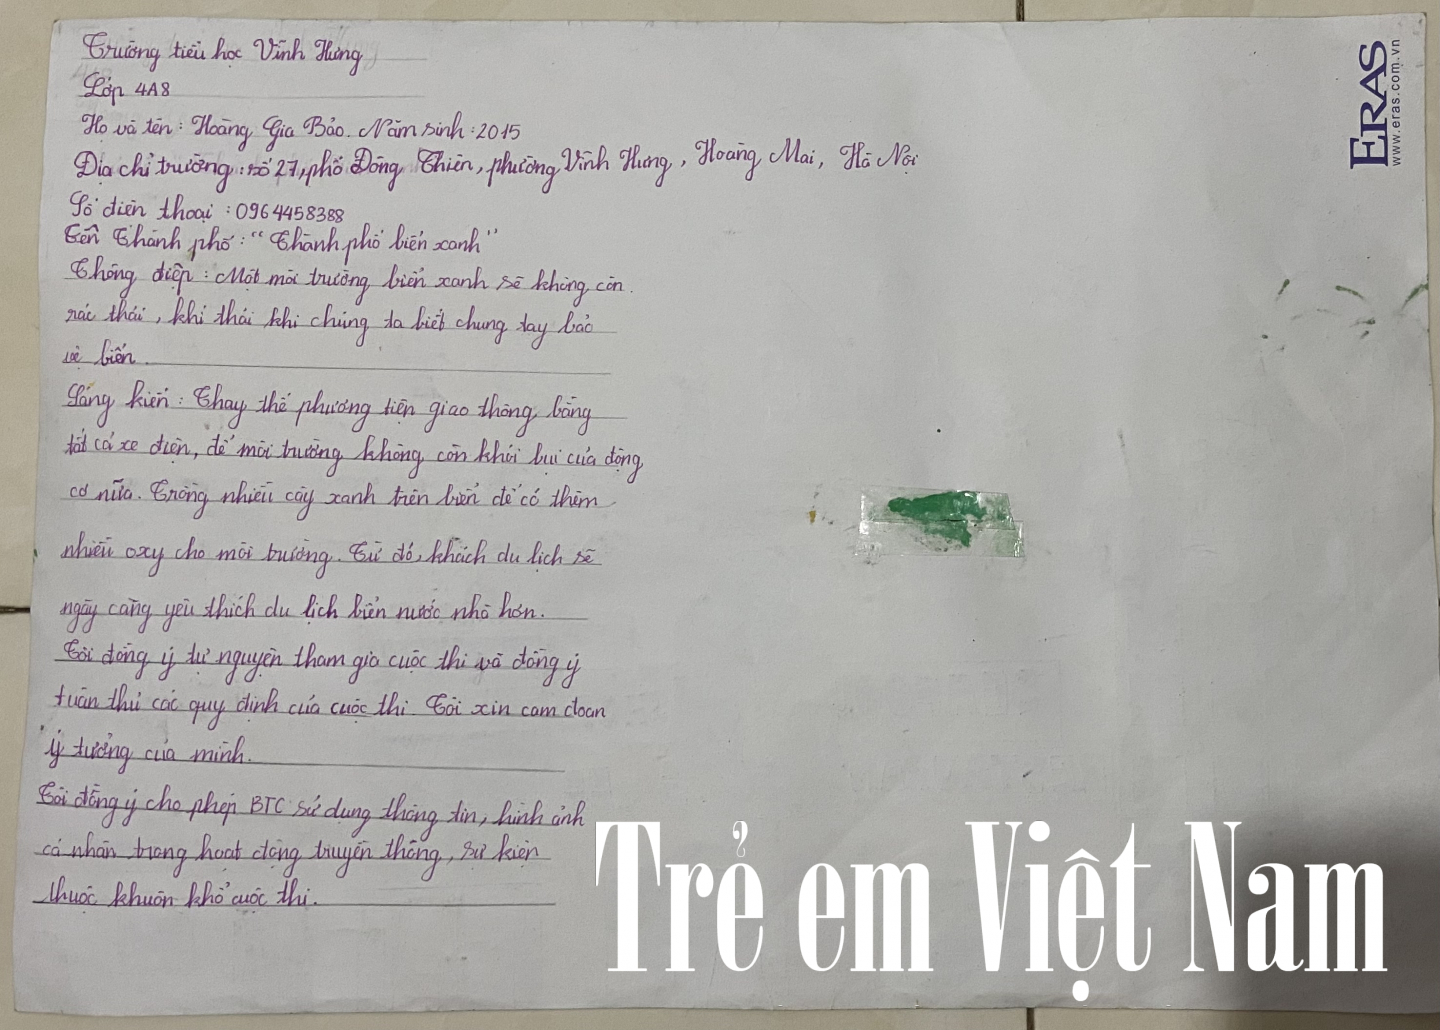 Trường tiểu học Vĩnh Hưng
Lớp 4A8
Họ và tên: Hoàng Gia Bảo. Năm sinh: 2015
Địa chỉ trường: số 27, phố Đông Thiên, phường Vĩnh Hưng, Hoàng Mai, Hà Nội
Số điện thoại: 0964458388
Tên Thành phố: "Thành phố biển xanh"
Thông điệp: Một môi trường biển xanh sẽ không còn
rác thải, khí thải khi chúng ta biết chung tay bảo
vệ biển.
Sáng kiến: Thay thế phương tiện giao thông bằng
tất cả xe điện, để môi trường không còn khói bụi của động
cơ nữa. Trồng nhiều cây xanh trên biển để có thêm
nhiều oxy cho môi trường. Từ đó, khách du lịch sẽ
ngày càng yêu thích du lịch biển nước nhà hơn.
Tôi đồng ý tự nguyện tham gia cuộc thi và đồng ý
tuân thủ các quy định của cuộc thi. Tôi xin cam đoan
ý tưởng của mình.
Tôi đồng ý cho phép BTC sử dụng thông tin, hình ảnh
cá nhân trong hoạt động truyền thông, sự kiện
thuộc khuôn khổ cuộc thi.
ERAS
www.eras.com.vn
Trẻ em Việt Nam